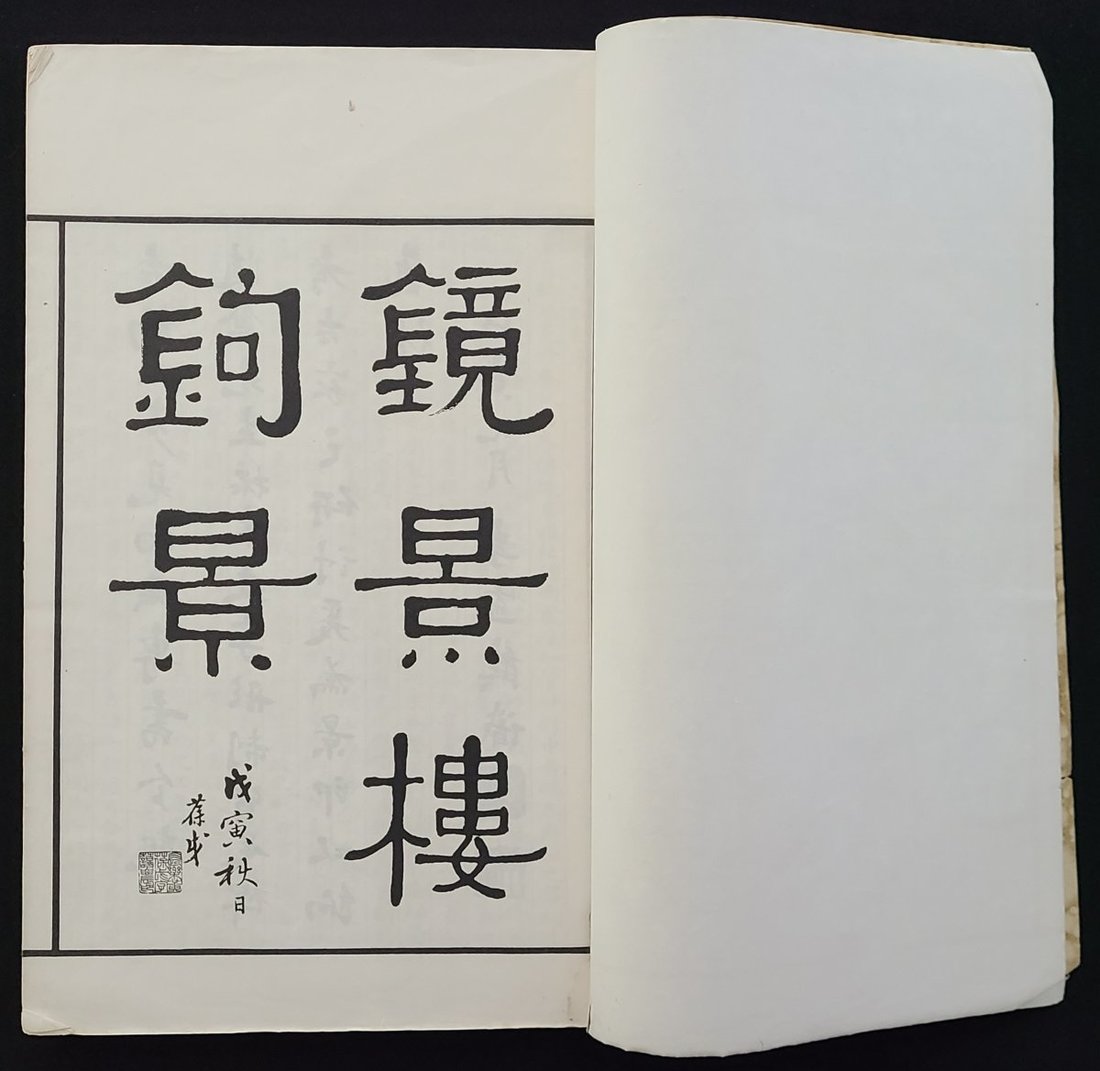 鏡景樓
鉤景
戊寅秋日
葆戉